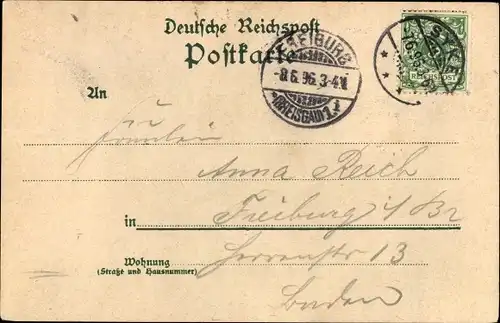 Deutsche Reichspost
Postkarte
FREIBURG
-8.6.96.3-4N.
(BREISGAU) 1.
REICHSPOST
An
Fräulein
Anna Reich
in Freiburg i/Br
Wohnung Herrenstr 13
(Straße und Hausnummer)
Baden